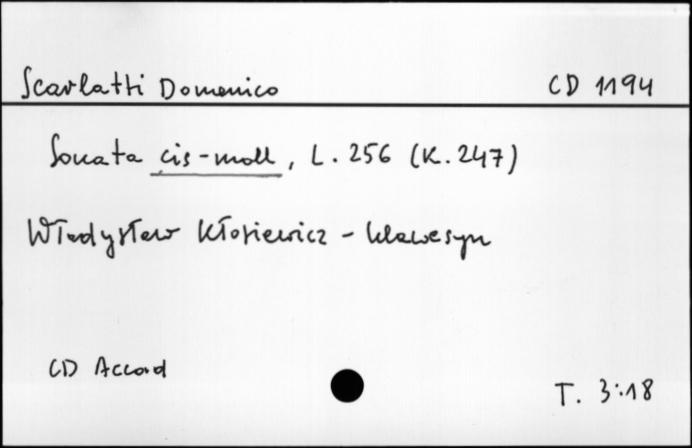 Scarlatti Domenico CD 1194
Sonata cis-moll, L. 256 (K. 247)
Władysław Kłosiewicz - klawesyn
CD Accord
T. 3:18